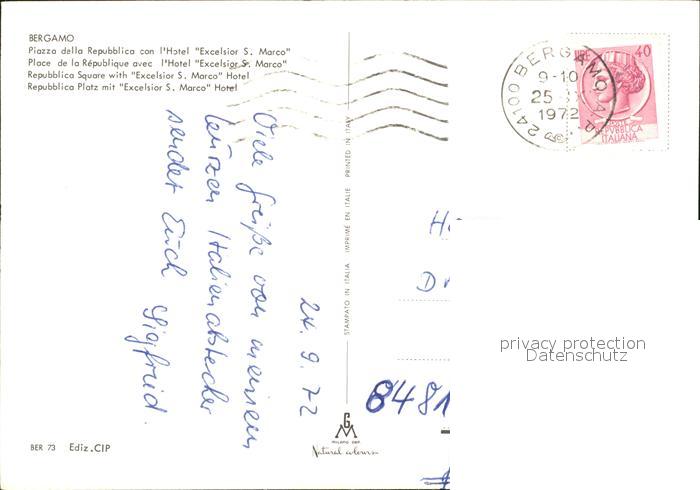 BERGAMO
Piazza della Repubblica con l'Hotel "Excelsior S. Marco"
Place de la République avec l'Hotel "Excelsior S. Marco"
Repubblica Square with "Excelsior S. Marco" Hotel
Repubblica Platz mit "Excelsior S. Marco" Hotel
24.9.72
Viele Grüße von meinem
kurzen Italienabstecher
sendet Euch Sigfried.
STAMPATO IN ITALIA IMPRIMÉ EN ITALIE PRINTED IN ITALY
24100 BERGAMO
9-10
25
1972
40
REPVBBLICA
ITALIANA
H
D
8481
privacy protection
Datenschutz
GM
MILANO DEP.
Natural colours
BER 73 Ediz.CIP